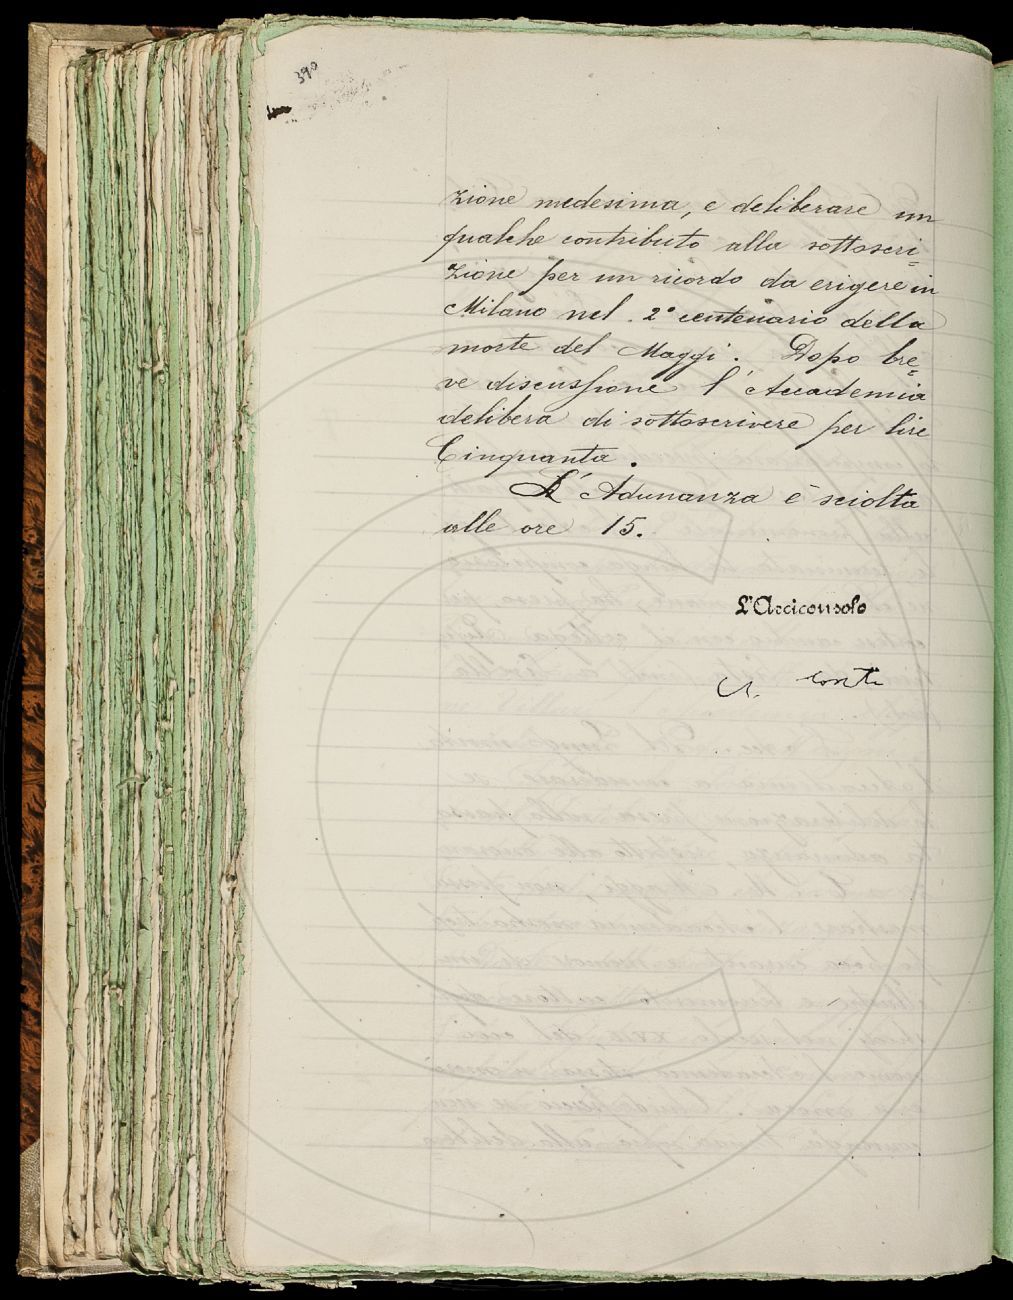 390
zione medesima, e deliberare un
qualche contributo alla sottoscri=
zione per un ricordo da erigere in
Milano nel 2° centenario della
morte del Maggi. Dopo bre=
ve discussione l'Accademia
delibera di sottoscrivere per lire
Cinquanta.
L'Adunanza è sciolta
alle ore 15.
L'Arciconsolo
A. Conti